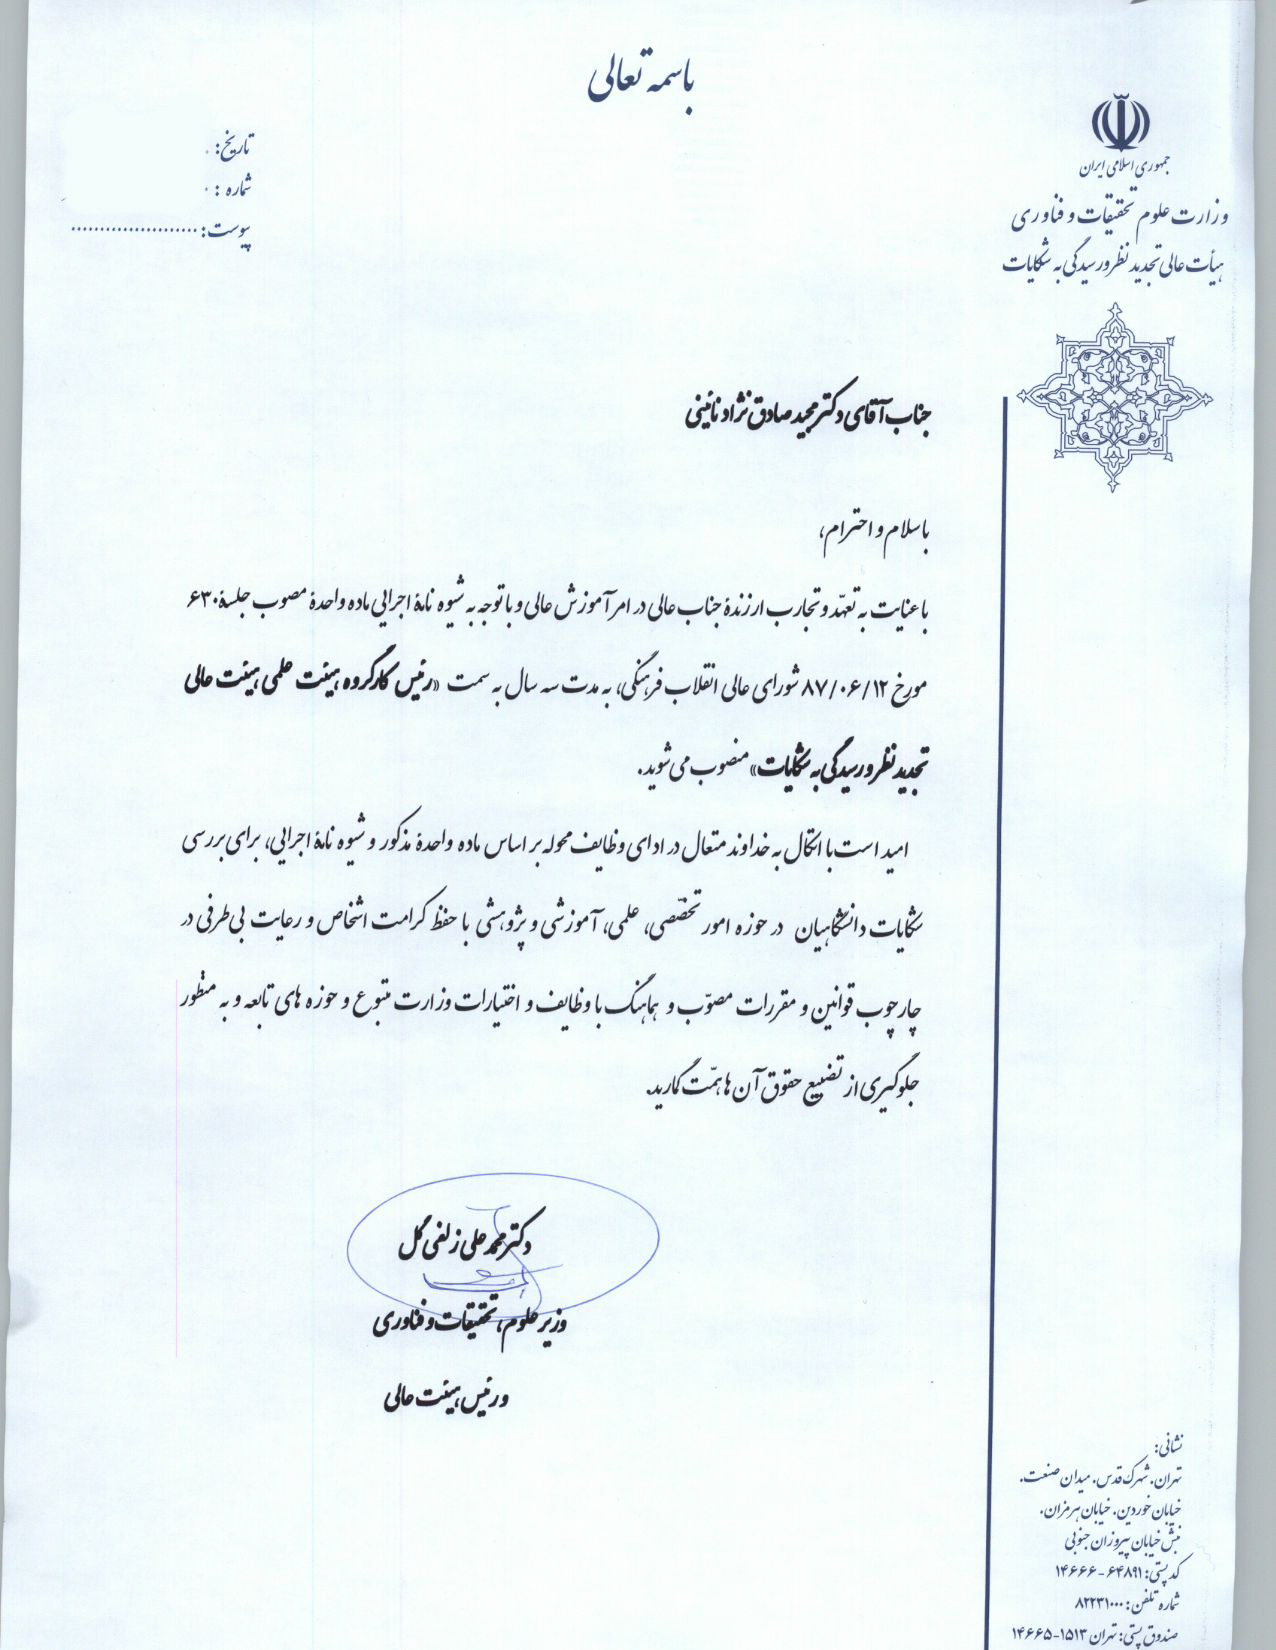 باسمه تعالی
جمهوری اسلامی ایران
وزارت علوم تحقیقات و فناوری
هیأت عالی تجدید نظر و رسیدگی به شکایات
تاریخ:
شماره:
پیوست: ......................
جناب آقای دکتر مجید صادق نژاد نائینی
با سلام و احترام،
با عنایت به تعهّد و تجارب ارزندهٔ جناب عالی در امر آموزش عالی و با توجه به شیوه نامهٔ اجرایی ماده واحدهٔ مصوب جلسهٔ ۶۳۰
مورخ ۸۷/۰۶/۱۲ شورای عالی انقلاب فرهنگی، به مدت سه سال به سمت «رئیس کارگروه هیئت علمی هیئت عالی
تجدید نظر و رسیدگی به شکایات» منصوب می شوید.
امید است با اتکال به خداوند متعال در ادای وظایف محوله بر اساس ماده واحدهٔ مذکور و شیوه نامهٔ اجرایی، برای بررسی
شکایات دانشگاهیان در حوزه امور تخصّصی، علمی، آموزشی و پژوهشی با حفظ کرامت اشخاص و رعایت بی طرفی در
چارچوب قوانین و مقررات مصوّب و هماهنگ با وظایف و اختیارات وزارت متبوع و حوزه های تابعه و به منظور
جلوگیری از تضییع حقوق آن ها همّت گمارید.
دکتر محمد علی زلفی گل
وزیر علوم، تحقیقات و فناوری
و رئیس هیئت عالی
نشانی:
تهران، شهرک قدس، میدان صنعت،
خیابان خوردین، خیابان هرمزان،
نبش خیابان پیروزان جنوبی
کد پستی: ۶۴۸۹۱-۱۴۶۶۶
شماره تلفن: ۸۲۲۳۱۰۰۰
صندوق پستی: تهران ۱۵۱۳-۱۴۶۶۵